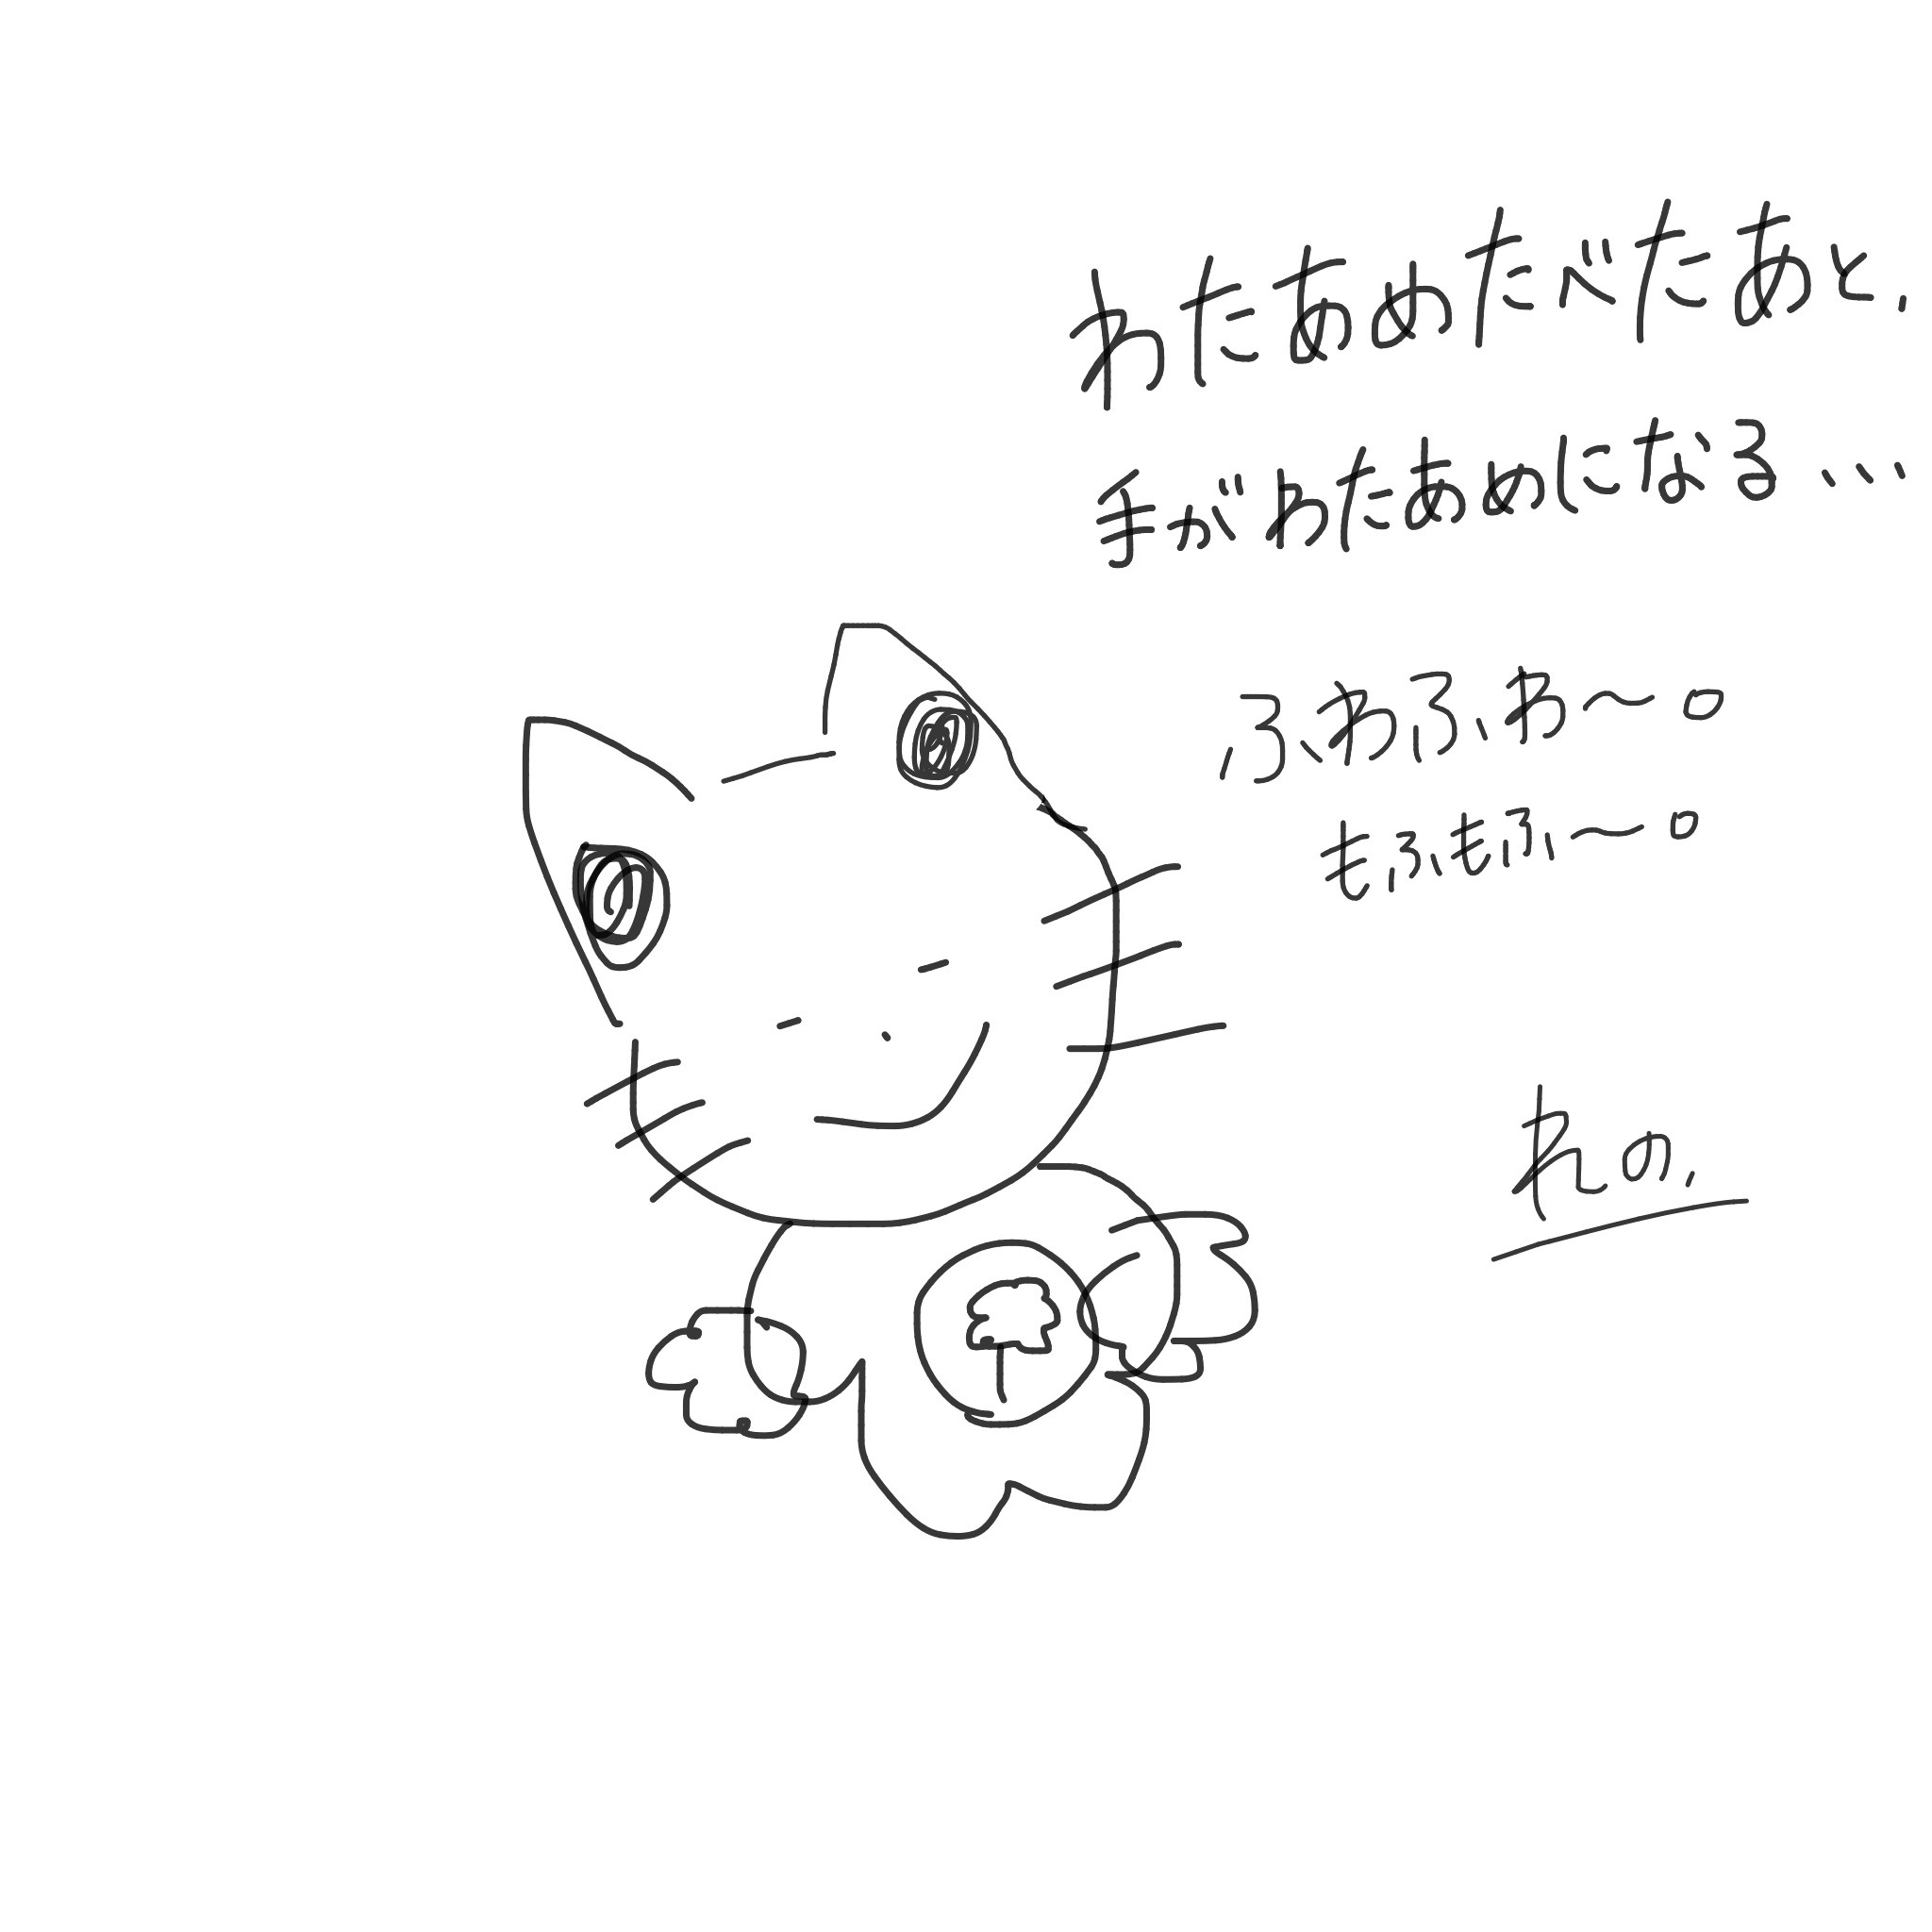 わたあめたべたあと、
手がわたあめになる...
ふわふわ〜。
もふもふ〜。
れの.